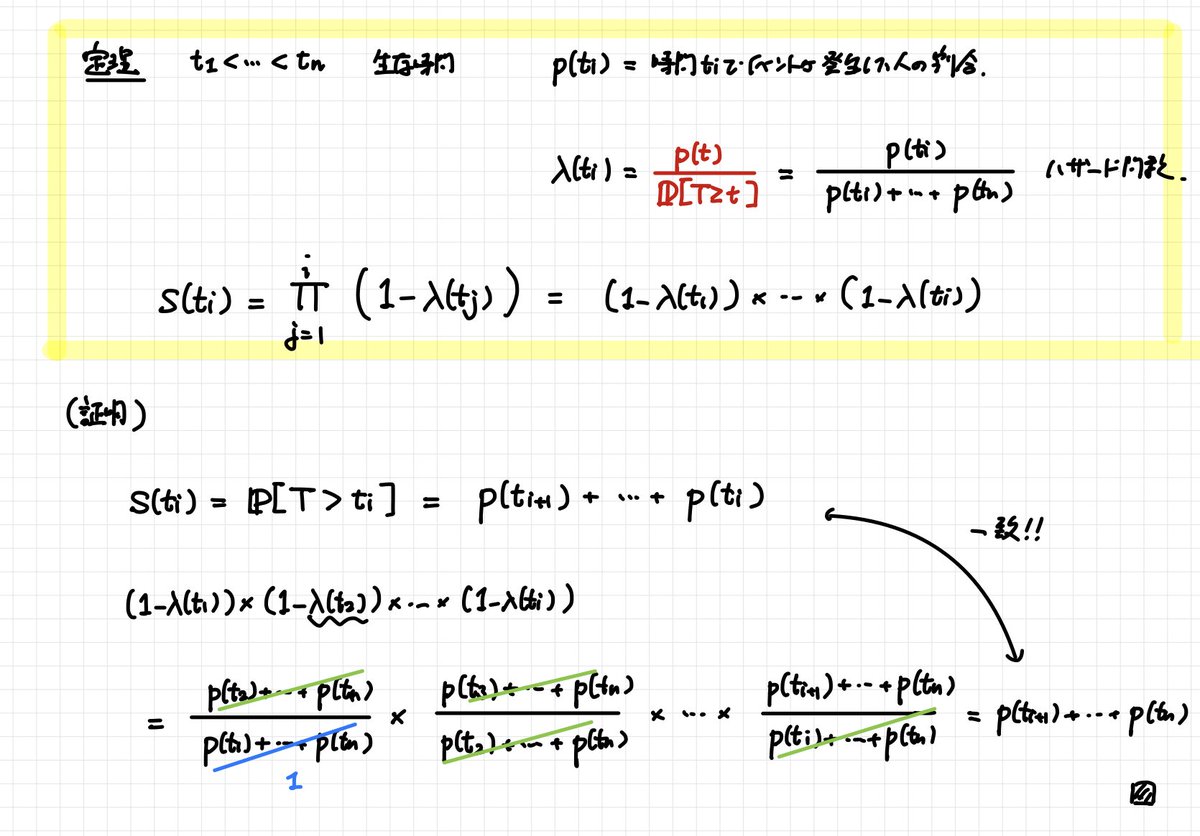 定理 t₁ < ... < tₙ 生存時間 p(tᵢ) = 時間tᵢでイベントが発生した人の割合.
λ(tᵢ) = p(t) / ℙ[T≥t] = p(tᵢ) / p(tᵢ) + ... + p(tₙ) ハザード関数.
S(tᵢ) = ∏ᵢⱼ₌₁ (1-λ(tⱼ)) = (1-λ(t₁)) × ... × (1-λ(tᵢ))
(証明)
S(tᵢ) = ℙ[T > tᵢ] = p(tᵢ₊₁) + ... + p(tᵢ)
一致!!
(1-λ(t₁)) × (1-λ(t₂)) × ... × (1-λ(tᵢ))
= p(t₂) + ... + p(tₙ) / p(t₁) + ... + p(tₙ) × p(t₃) + ... + p(tₙ) / p(t₂) + ... + p(tₙ) × ... × p(tᵢ₊₁) + ... + p(tₙ) / p(tᵢ) + ... + p(tₙ) = p(tᵢ₊₁) + ... + p(tₙ)
1